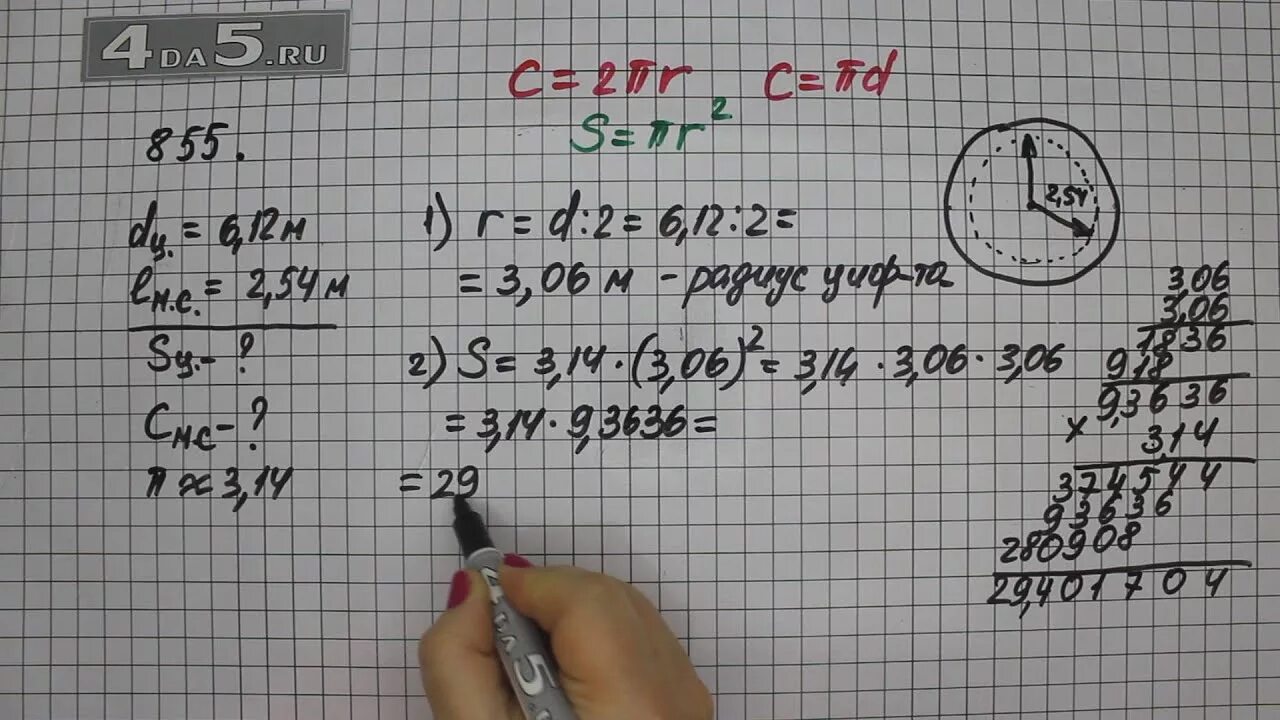 4DA5.RU
C = 2πr C = πd
S = πr²
855.
dц. = 6,12 м
lм.с. = 2,54 м
Sц. - ?
Cмс - ?
π ≈ 3,14
1) r = d:2 = 6,12:2 =
= 3,06 м - радиус циф-та
2) S = 3,14 · (3,06)² = 3,14 · 3,06 · 3,06
= 3,14 · 9,3636 =
= 29
2,54
3,06
3,06
1836
918
9,3636
× 3,14
374544
93636
280908
29,401704